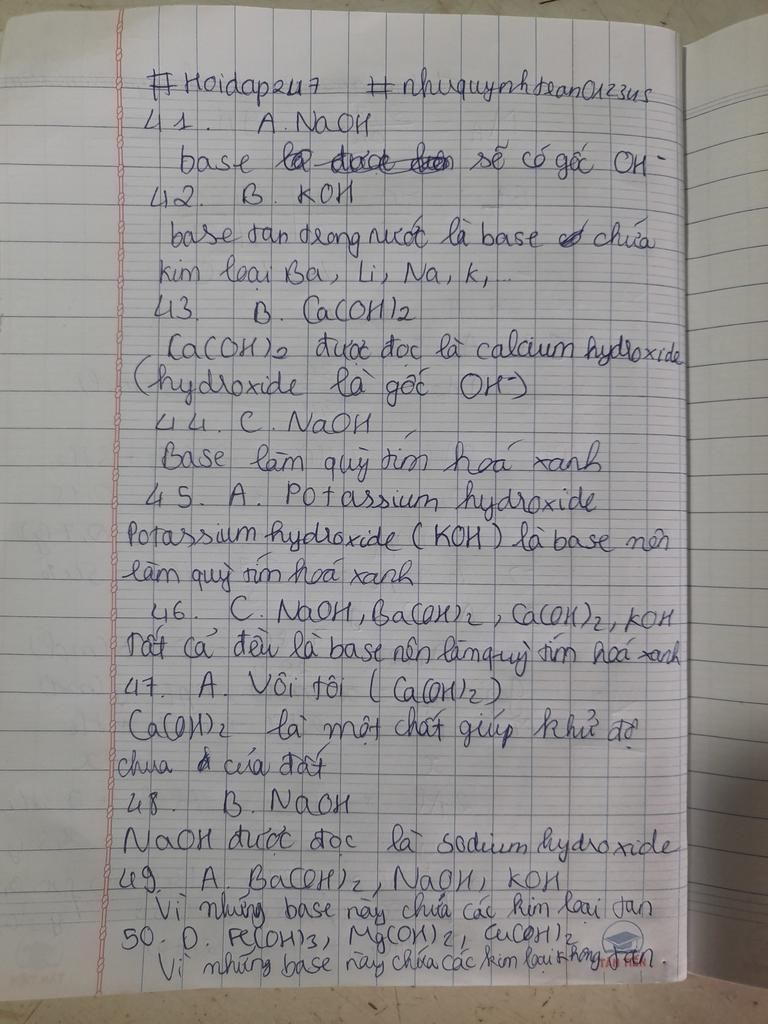 #Hoidap247 #nhuquynhtran012345
41. A. NaOH
base sẽ có gốc OH⁻
42. B. KOH
base tan trong nước là base chứa
kim loại Ba, Li, Na, K,...
43. B. Ca(OH)2
Ca(OH)2 được đọc là calcium hydroxide
(hydroxide là gốc OH⁻)
44. C. NaOH
Base làm quỳ tím hoá xanh
45. A. Potassium hydroxide
Potassium hydroxide (KOH) là base nên
làm quỳ tím hoá xanh
46. C. NaOH, Ba(OH)2, Ca(OH)2, KOH
Tất cả đều là base nên làm quỳ tím hoá xanh
47. A. Vôi tôi (Ca(OH)2)
Ca(OH)2 là một chất giúp khử độ
chua của đất
48. B. NaOH
NaOH được đọc là sodium hydroxide
49. A. Ba(OH)2, NaOH, KOH
Vì những base này chứa các kim loại tan
50. D. Fe(OH)3, Mg(OH)2, Cu(OH)2
Vì những base này chứa các kim loại không tan.